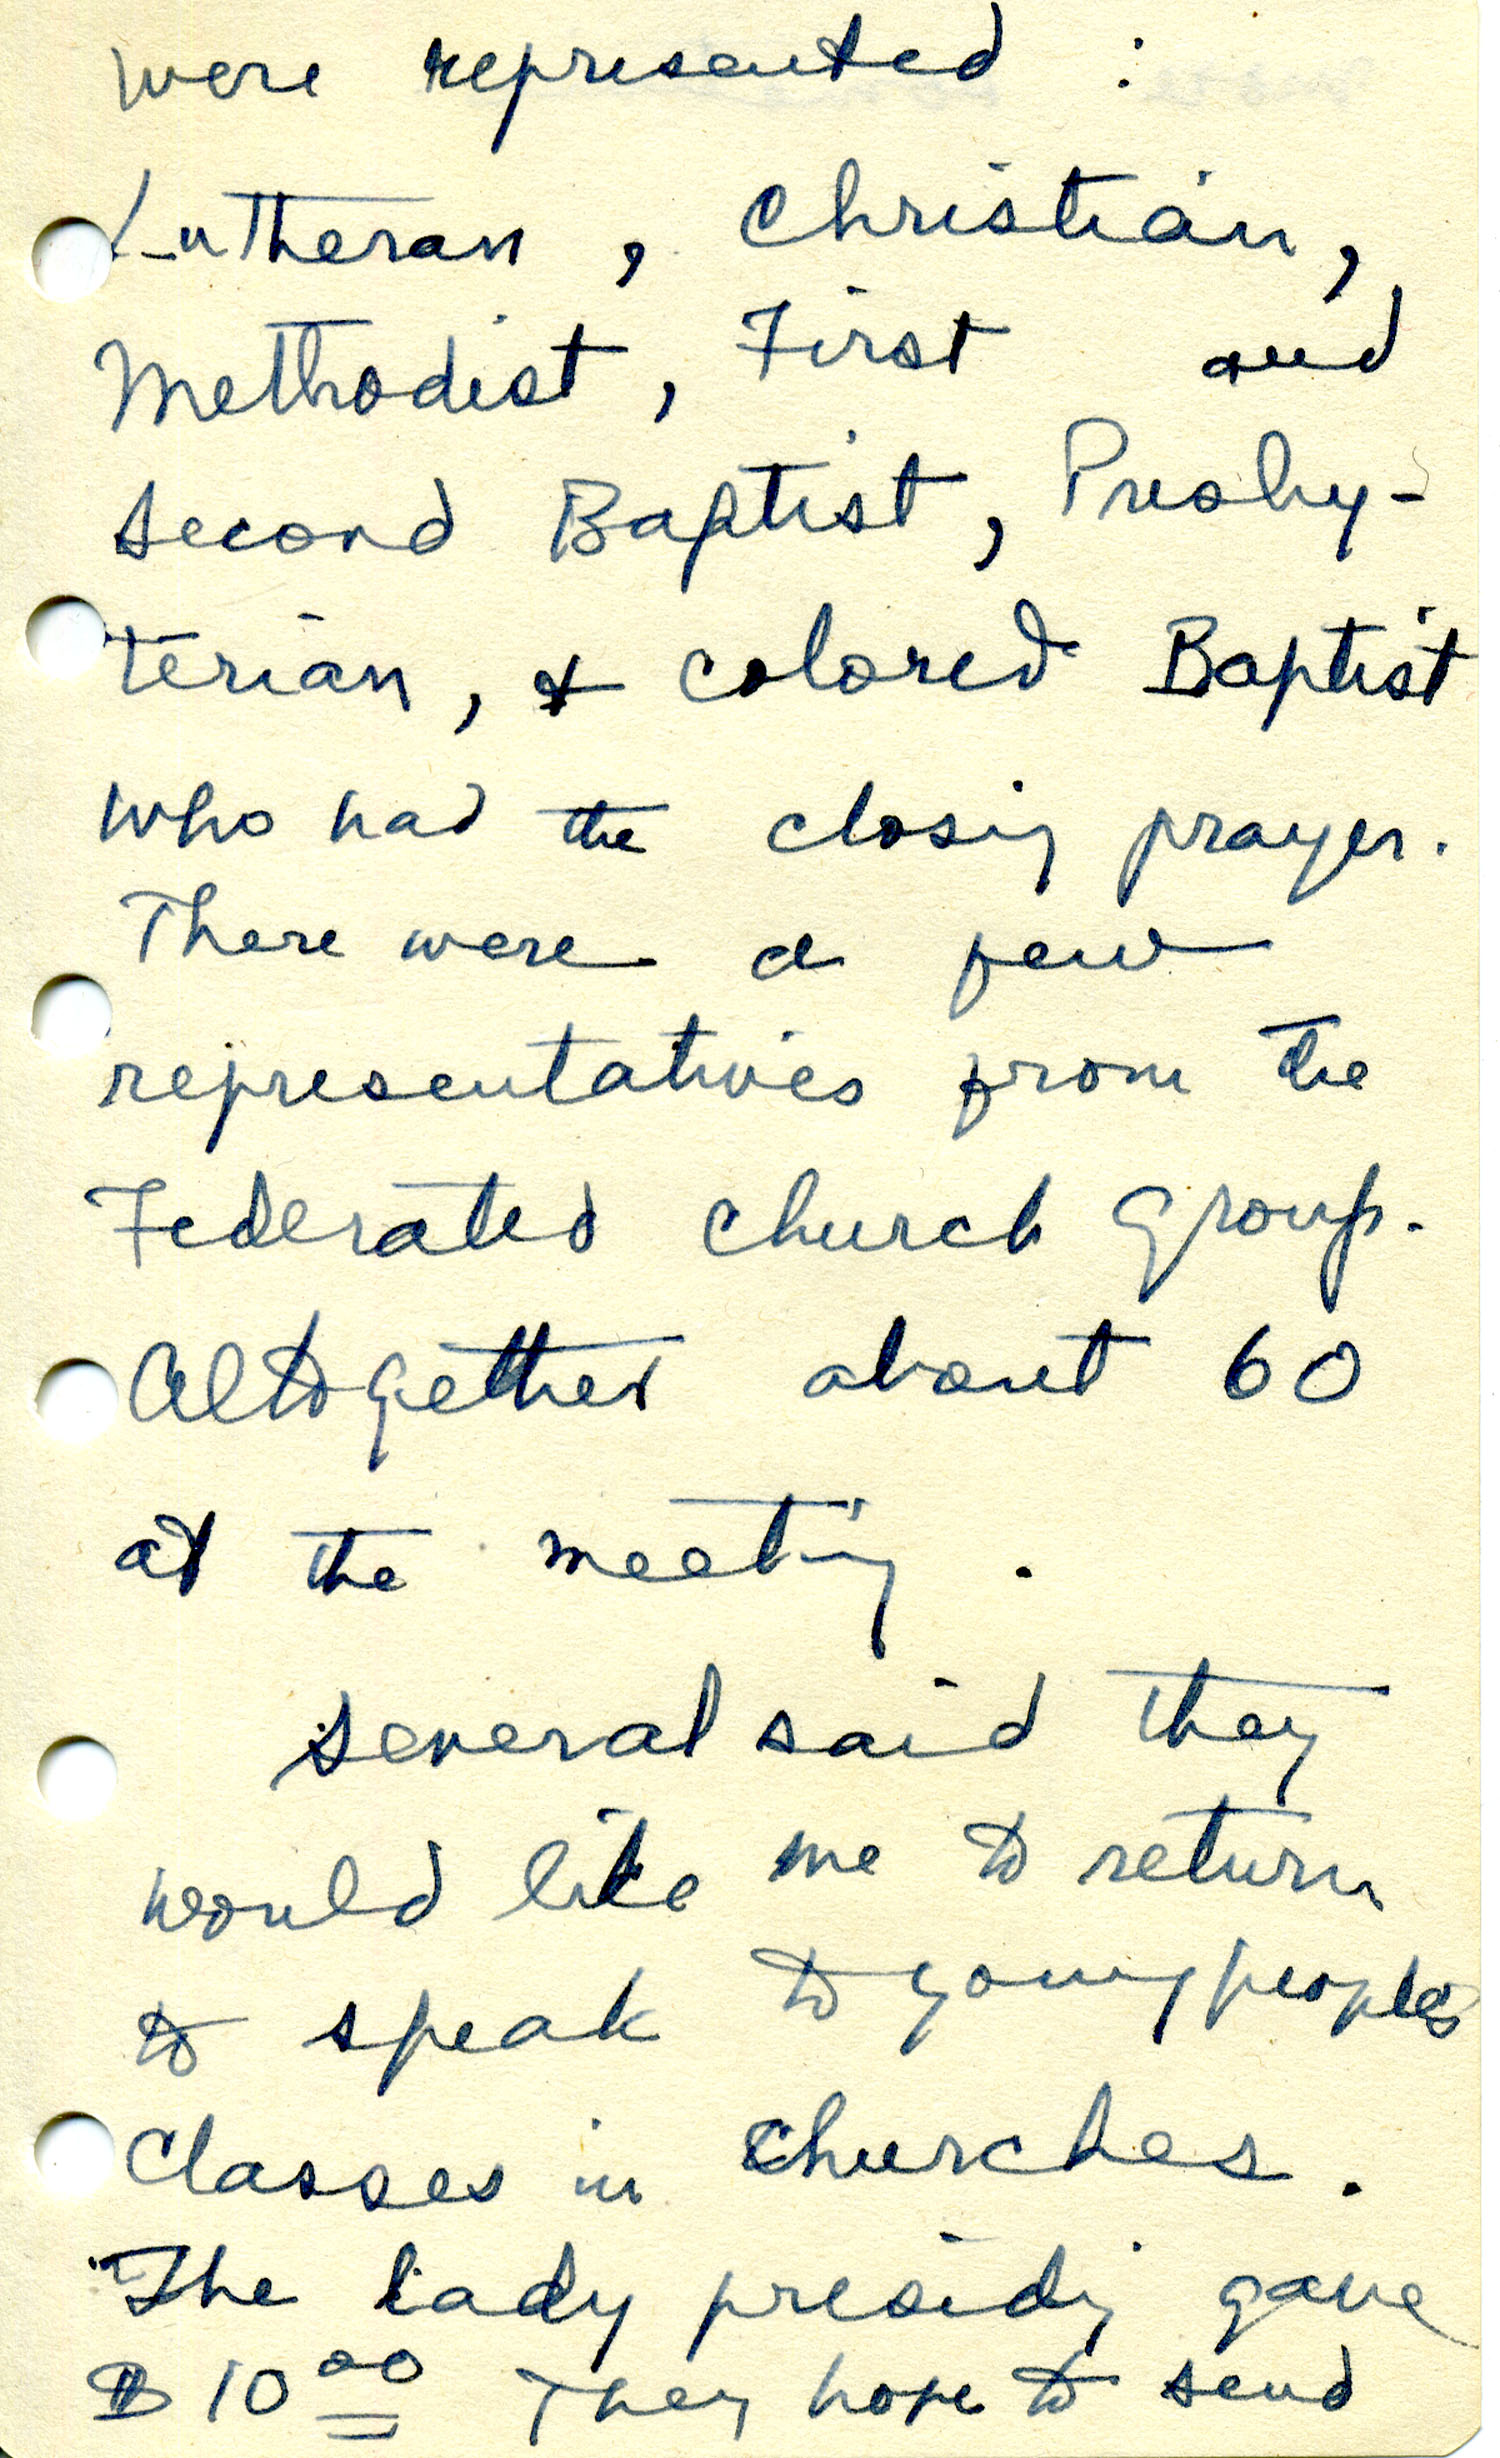 were represented :
Lutheran, Christian,
Methodist, First and
Second Baptist, Presby-
terian, & colored Baptist
who had the closing prayer.
There were a few
representatives from the
Federated Church Group.
Altogether about 60
at the meeting.
Several said they
would like me to return
to speak to young peoples
Classes in Churches.
The lady presiding gave
$10.00 They hope to send